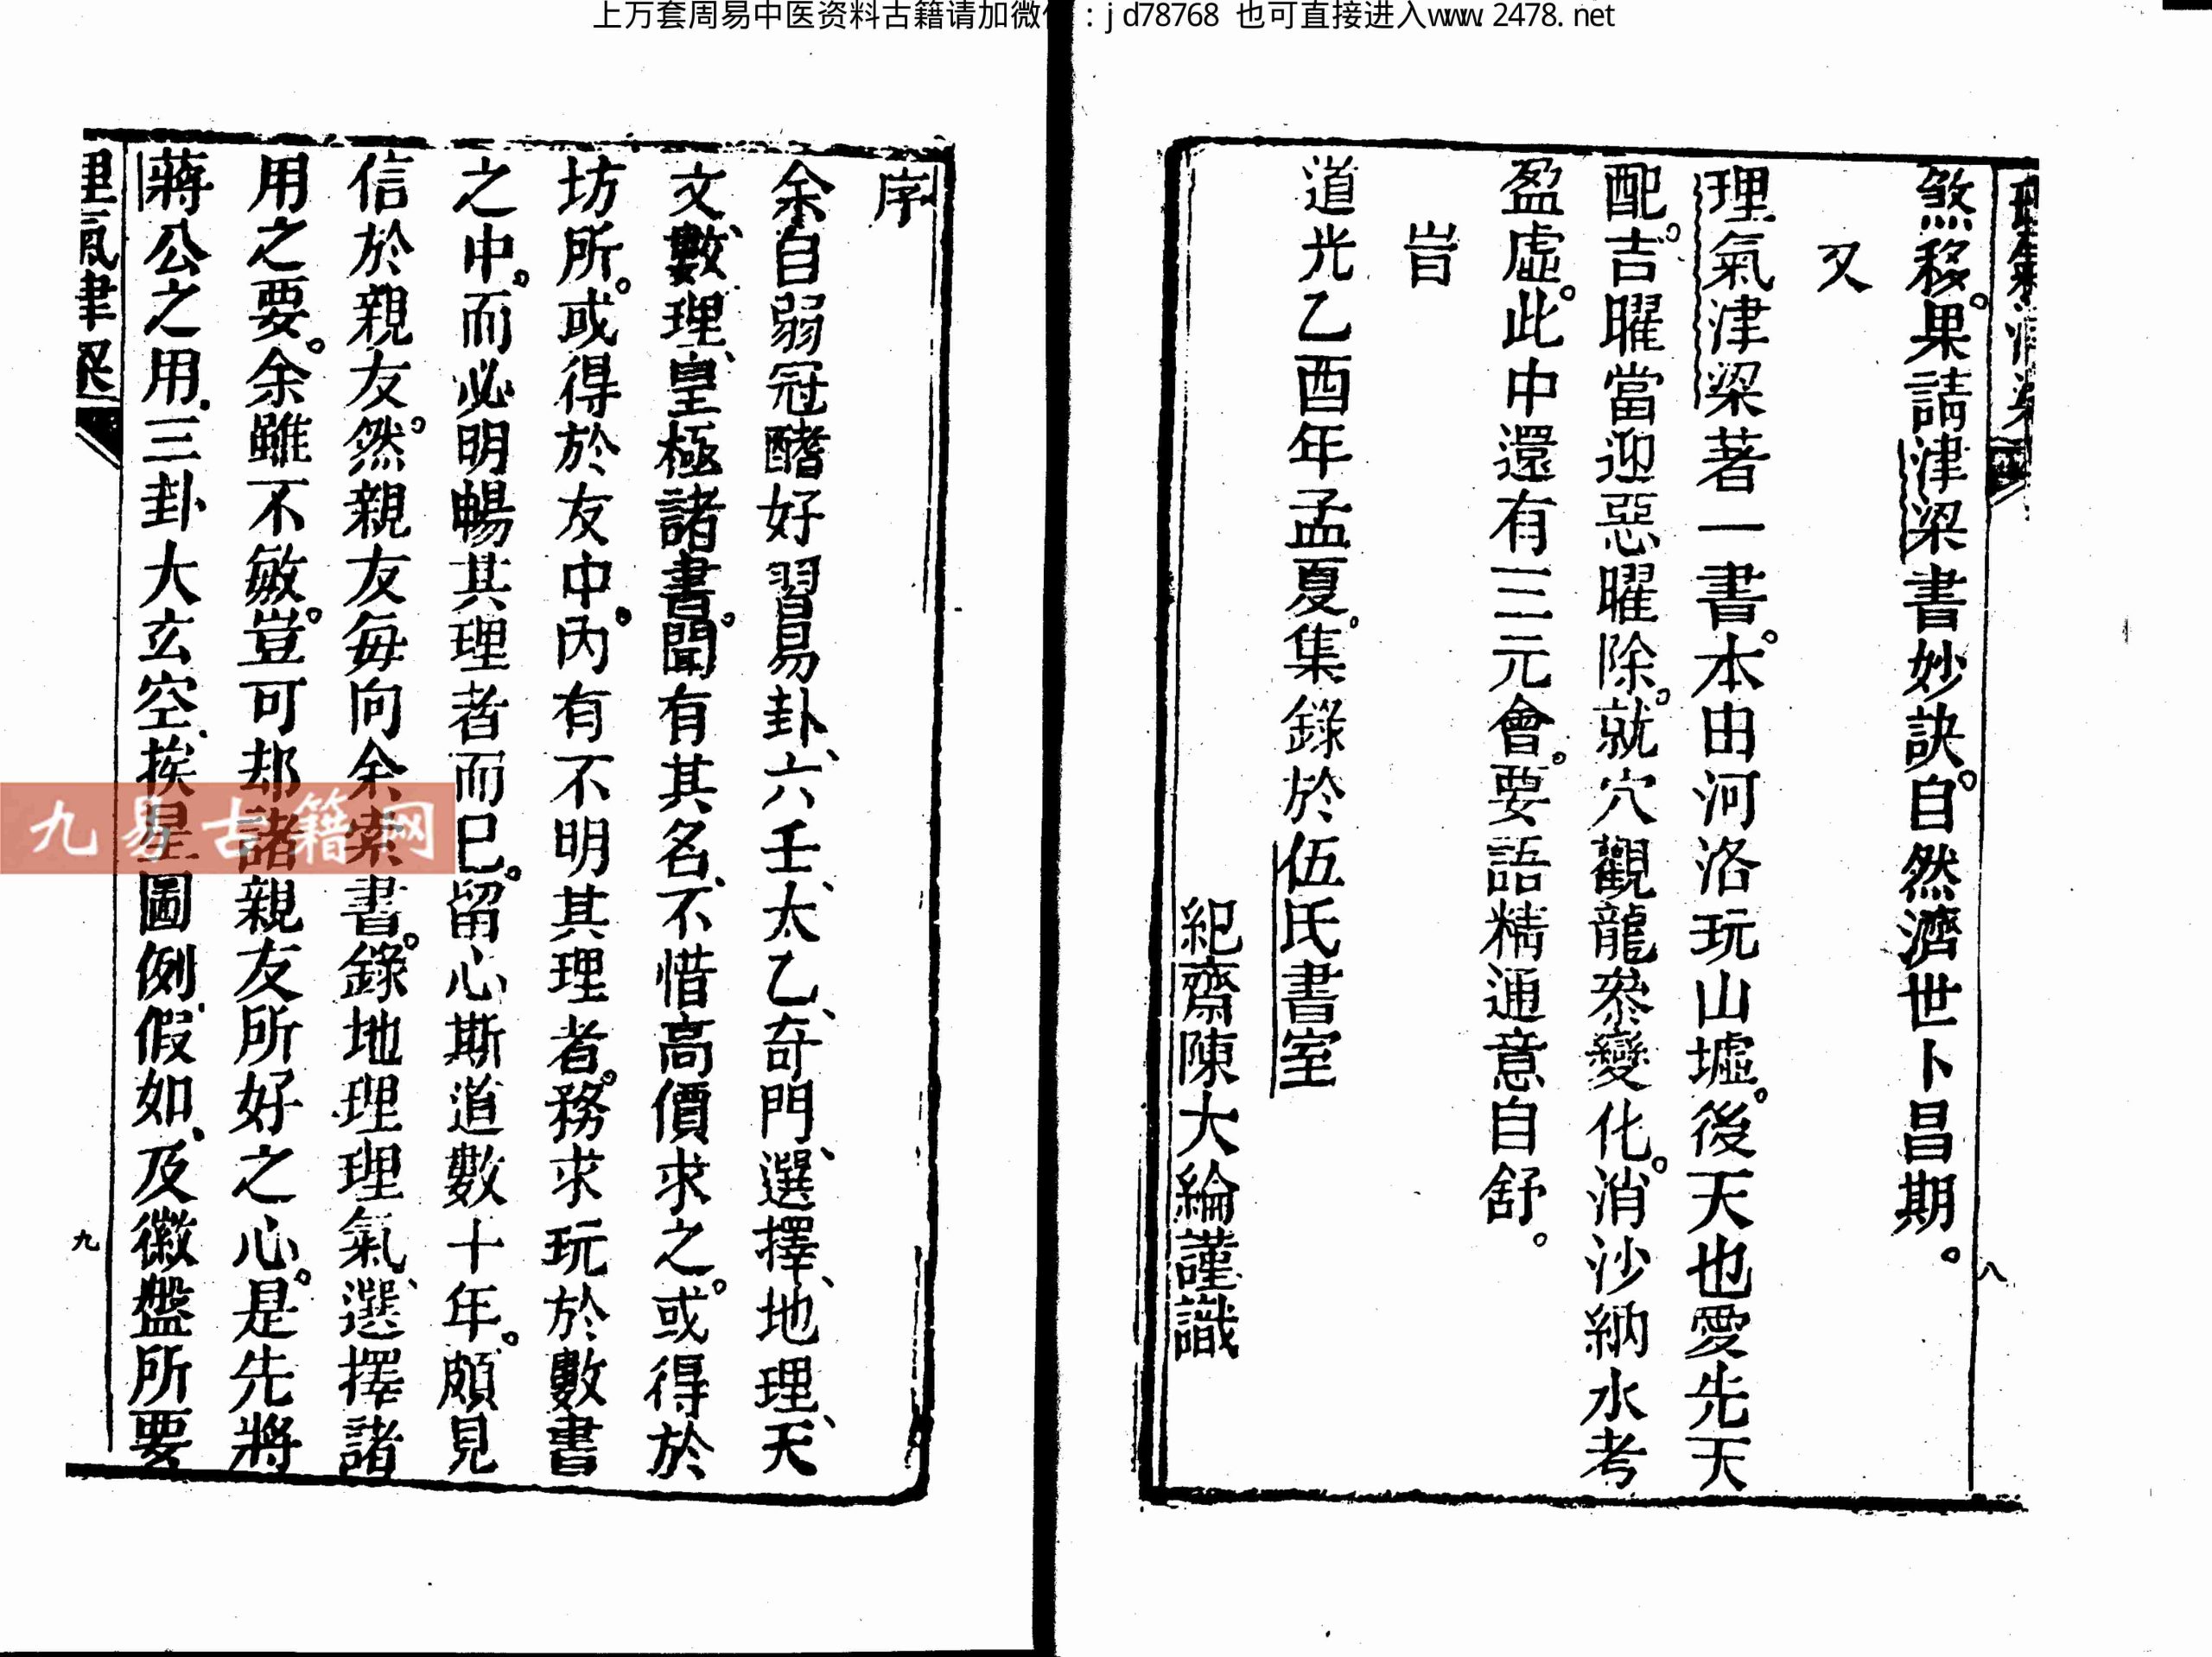 上万套周易中医资料古籍请加微信：jd78768 也可直接进入www.2478.net
八
煞移。果請津梁書妙訣。自然濟世卜昌期。
又
理氣津梁著一書。本由河洛玩山墟。後天也愛先天
配。吉曜當迎惡曜除。就穴觀龍叅變化。消沙納水考
盈虛。此中還有三元會。要語精通意自舒。
旹
道光乙酉年孟夏。集錄於伍氏書室
紀齋陳大綸謹識
序
余自弱冠酷好習易卦、六壬、太乙、奇門、選擇、地理、天
文、數理、皇極諸書。聞有其名、不惜高價求之。或得於
坊所。或得於友中。內有不明其理者。務求玩於數書
之中。而必明暢其理者而已。留心斯道數十年。頗見
信於親友。然親友每向余索書。錄地理理氣、選擇諸
用之要。余雖不敏。豈可却諸親友所好之心。是先將
蔣公之用、三卦大玄空、挨星圖例、假如、及徽盤所要
理氣津梁
九
九易古籍网